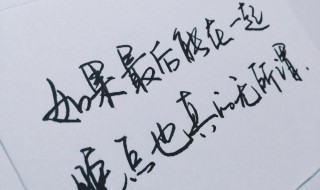 如果最后能在一起
晚点也真的无所谓.